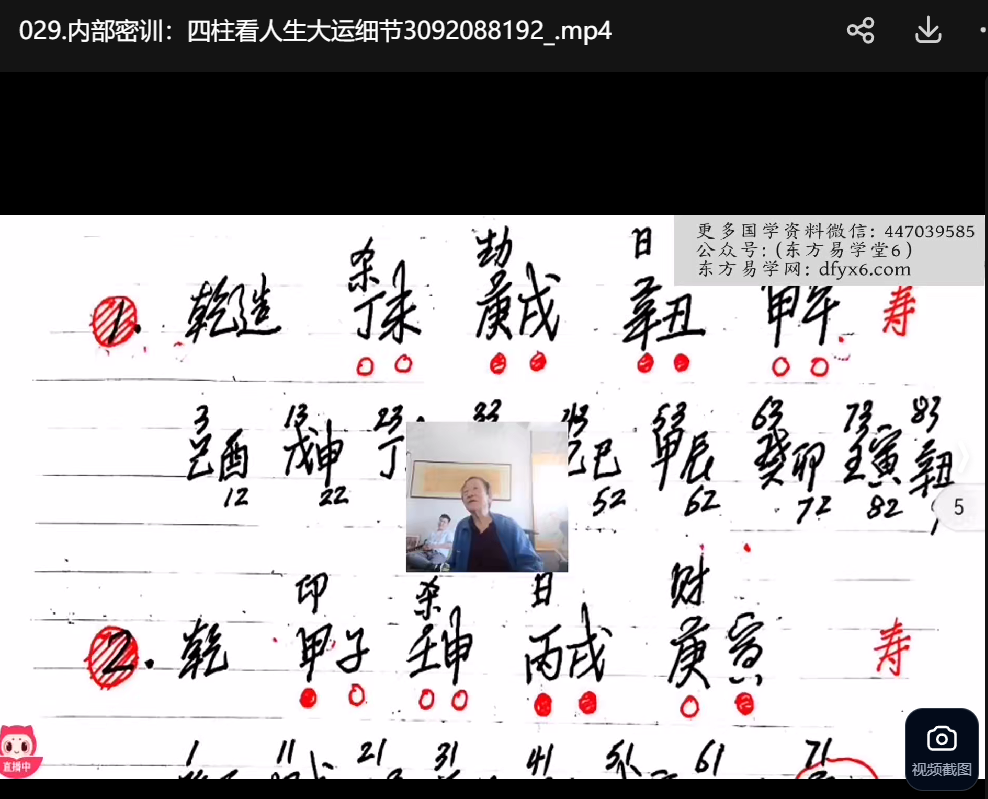 029.内部密训：四柱看人生大运细节3092088192_.mp4
更多国学资料微信：447039585
公众号：(东方易学堂6)
东方易学网：dfyx6.com
杀 劫 日
1. 乾造 丁未 庚戌 辛丑 甲午 寿
3 13 23 33 43 53 63 73 83
己酉 戊申 丁 巳 甲辰 癸卯 壬寅 辛丑
12 22 52 62 72 82
5
印 杀 日 财
2. 乾 甲子 壬申 丙戌 庚寅 寿
1 11 21 31 41 51 61 71
直播中
视频截图